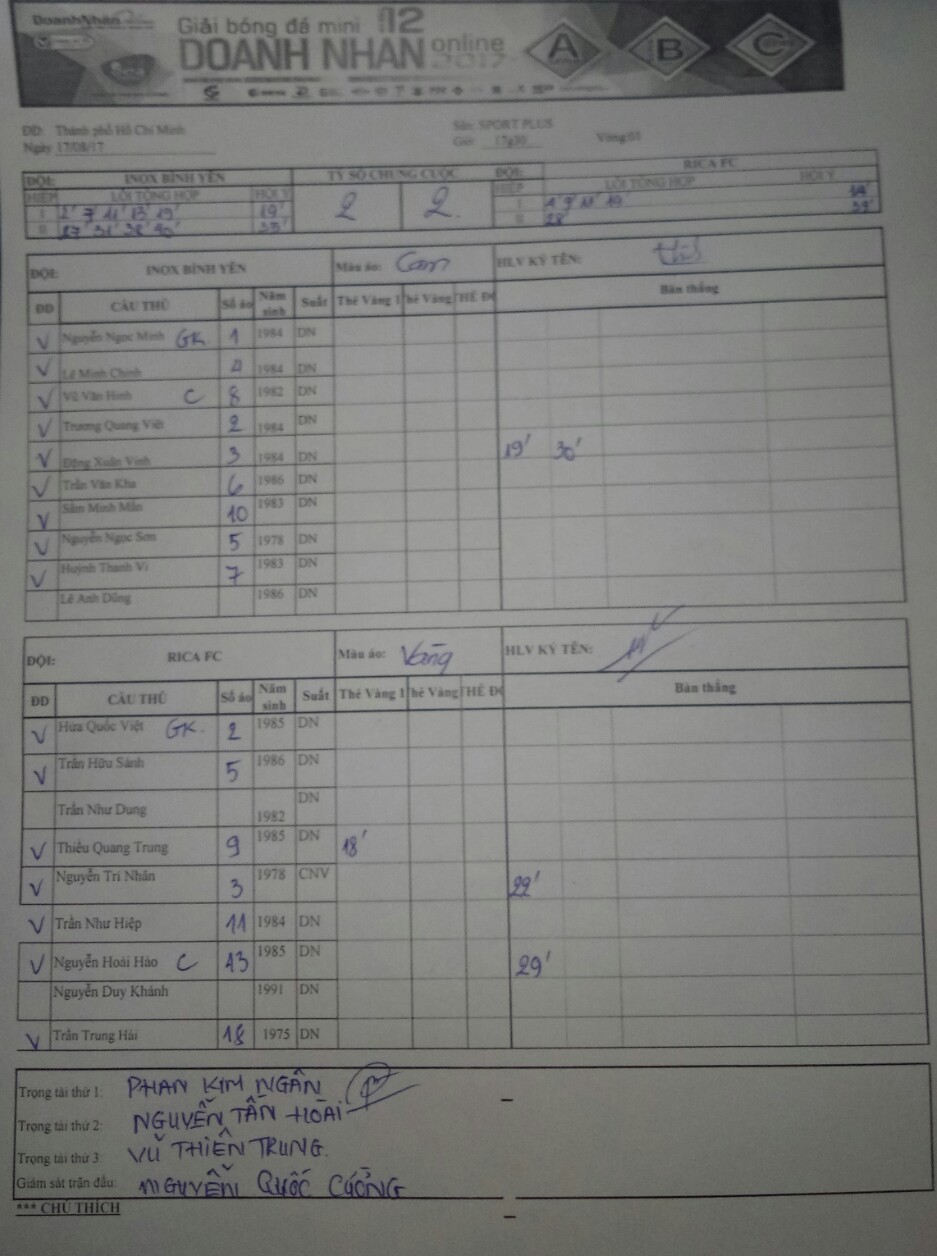 DoanhNhân
Giải bóng đá mini 12
DOANH NHÂN online
2017
A B C
ĐĐ: Thành phố Hồ Chí Minh Sân: SPORT PLUS
Ngày 17/08/17 Giờ: 17g30 Vòng:
ĐỘI: INOX BÌNH YÊN TỶ SỐ CHUNG CUỘC ĐỘI: RICA FC
HIỆP LỖI TỔNG HỢP HỘI Ý 2 2 HIỆP LỖI TỔNG HỢP HỘI Ý
I 2' 7' 11' 13' 19' 19' I 1' 9' 11' 19' 14'
II 27' 31' 38' 40' 35' II 28' 39'
ĐỘI: INOX BÌNH YÊN Màu áo: Cam HLV KÝ TÊN:
ĐD CẦU THỦ Số áo Năm sinh Suất Thẻ Vàng 1 Thẻ Vàng THẺ ĐỎ Bàn thắng
V Nguyễn Ngọc Minh GK 1 1984 DN
V Lê Minh Chính 4 1984 DN
V Vũ Văn Hinh C 8 1982 DN
V Trương Quang Việt 2 1984 DN
V Đặng Xuân Vinh 3 1984 DN 19' 30'
V Trần Văn Kha 6 1986 DN
V Sầm Minh Mẫn 10 1983 DN
V Nguyễn Ngọc Sơn 5 1978 DN
V Huỳnh Thanh Vi 7 1983 DN
Lê Anh Dũng 1986 DN
ĐỘI: RICA FC Màu áo: Vàng HLV KÝ TÊN:
ĐD CẦU THỦ Số áo Năm sinh Suất Thẻ Vàng 1 Thẻ Vàng THẺ ĐỎ Bàn thắng
V Hứa Quốc Việt GK. 2 1985 DN
V Trần Hữu Sánh 5 1986 DN
Trần Như Dung 1982 DN
V Thiều Quang Trung 9 1985 DN 18'
V Nguyễn Trí Nhân 3 1978 CNV 22'
V Trần Như Hiệp 11 1984 DN
V Nguyễn Hoài Hảo C 13 1985 DN 29'
Nguyễn Duy Khánh 1991 DN
V Trần Trung Hải 18 1975 DN
Trọng tài thứ 1: PHAN KIM NGÂN
Trọng tài thứ 2: NGUYỄN TẤN HOÀI
Trọng tài thứ 3 VŨ THIÊN TRUNG.
Giám sát trận đấu: NGUYỄN QUỐC CƯỜNG
*** CHÚ THÍCH